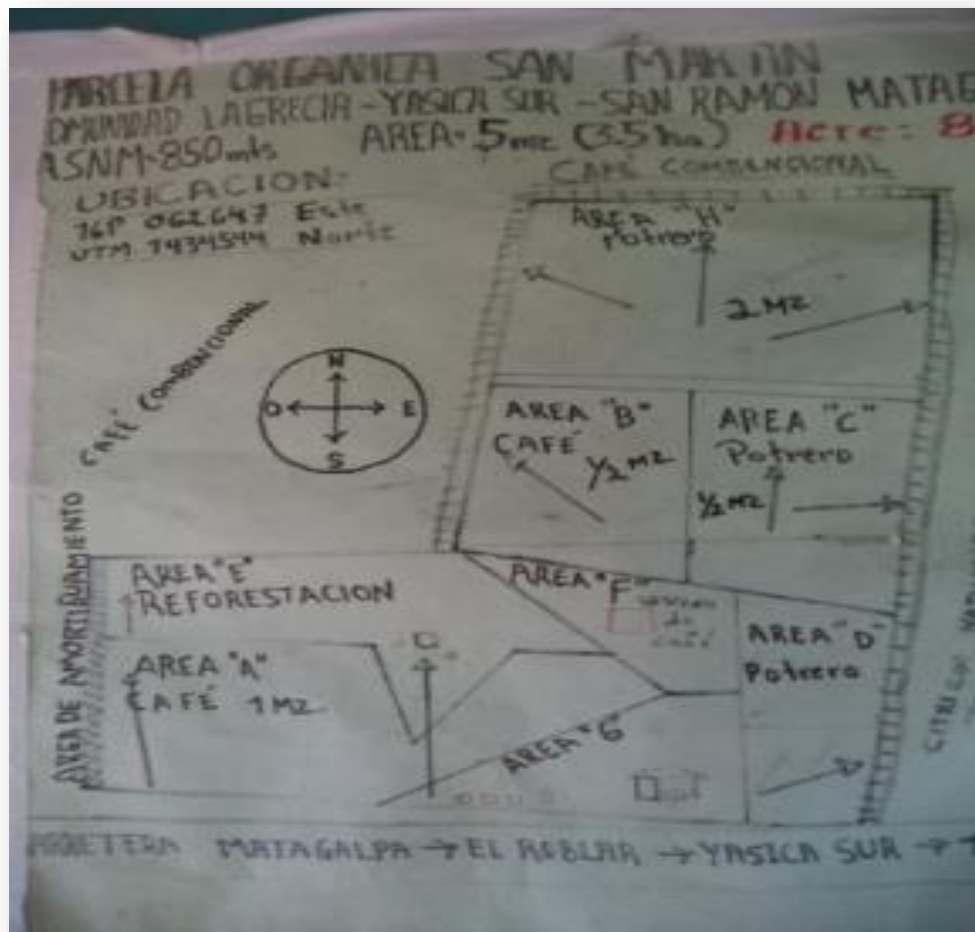 PARCELA ORGANICA SAN MARTIN
OMUNIDAD LA GRECIA - YASICA SUR - SAN RAMON MATAG
ASNM-850 mts AREA= 5mz (3.5ha) Acre: 8
UBICACION:
16P 062647 Este
UTM 1434544 Norte
CAFÉ COMBENCIONAL
AREA "H"
Potrero
2 MZ
CAFÉ COMBENCIONAL
N
O E
S
AREA "B"
CAFÉ
1/2 MZ
AREA "C"
Potrero
1/2 MZ
AREA DE AMORTIGUAMIENTO
AREA "E"
REFORESTACION
AREA "F"
AREA "A"
CAFÉ 1 MZ
AREA "D"
Potrero
AREA "G"
CITRICO
ARRETERA MATAGALPA → EL ROBLAR → YASICA SUR →